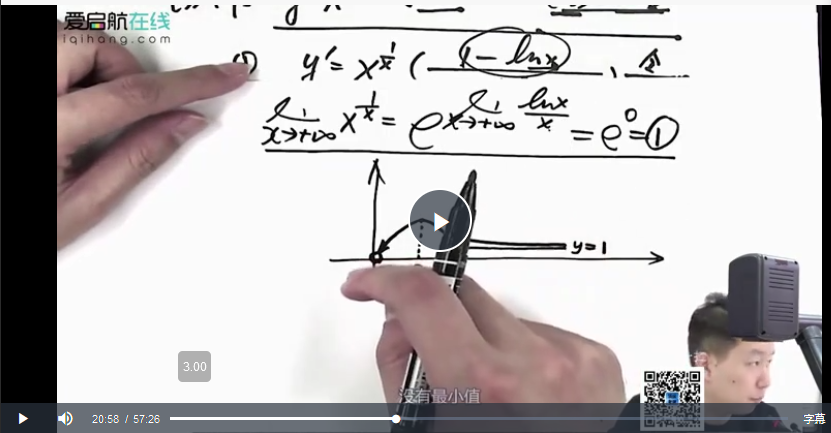 爱启航在线
iqihang.com
① y' = x^{1/x} ( 1 - lnx
lim x→+∞ x^{1/x} = e^{lim x→+∞ lnx/x} = e^0 = ①
y=1
3.00
没有最小值
20:58 / 57:26
字幕